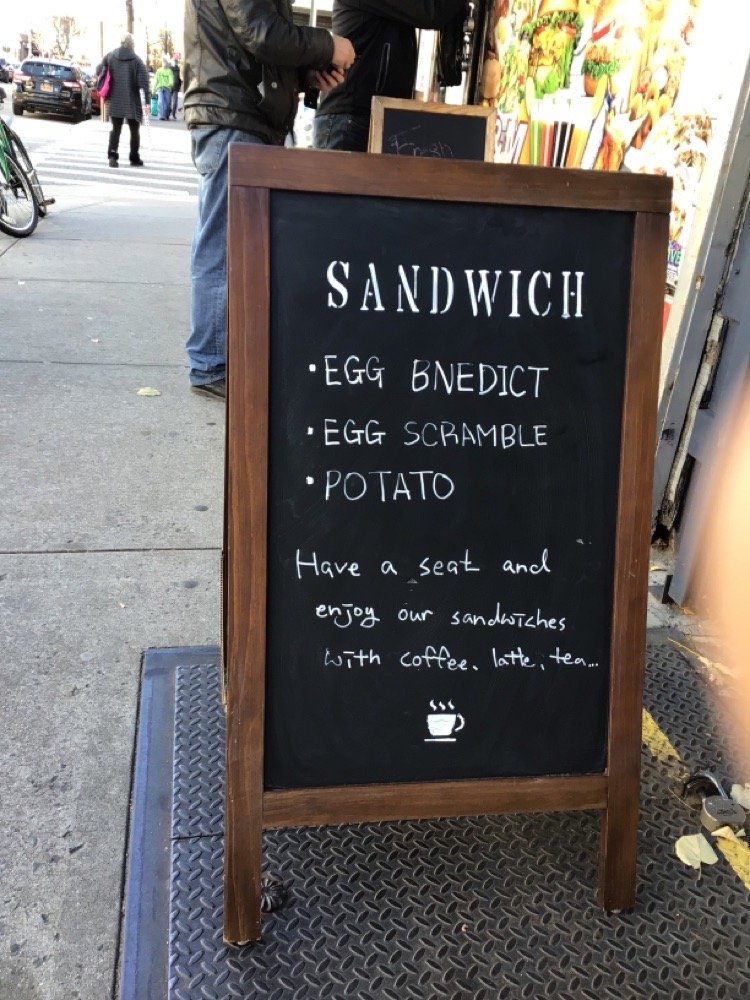 Fresh
SANDWICH
• EGG BNEDICT
• EGG SCRAMBLE
• POTATO
Have a seat and
enjoy our sandwiches
with coffee, latte, tea...